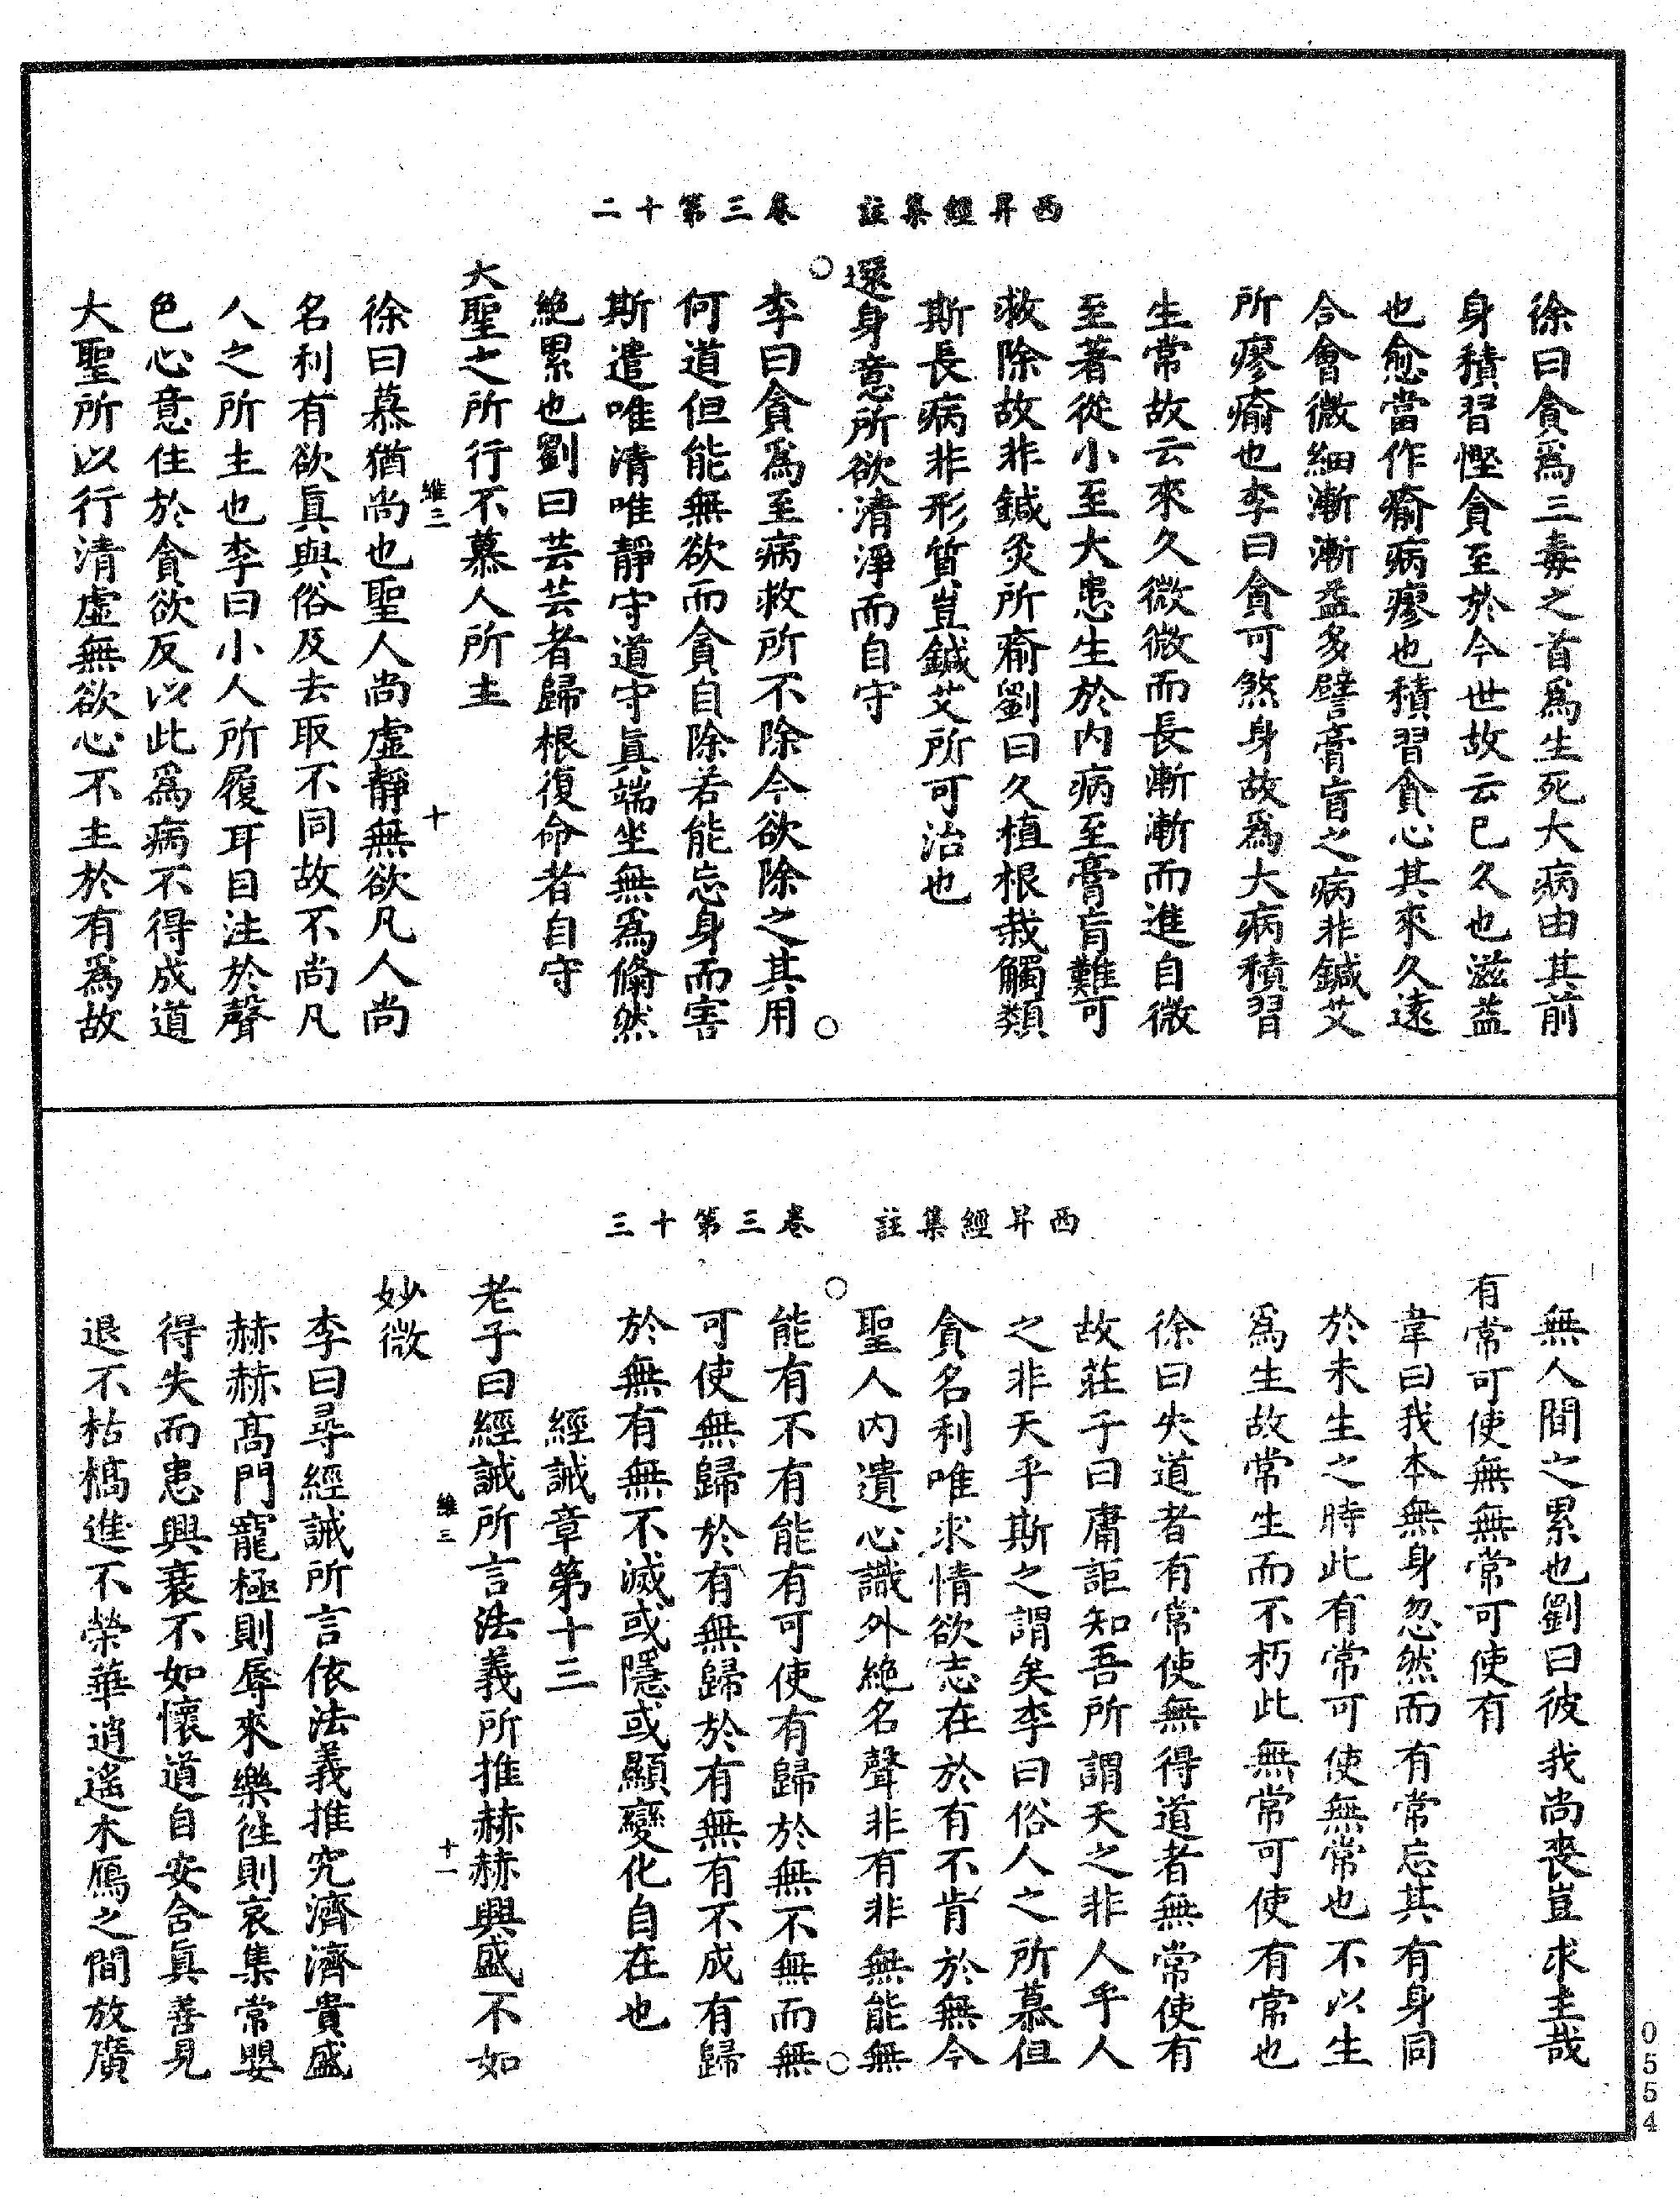 西昇經集註　卷三第十二
徐曰貪爲三毒之首爲生死大病由其前
身積習慳貪至於今世故云已久也滋益
也愈當作瘉病瘳也積習貪心其來久遠
合會微細漸漸益多譬膏肓之病非鍼艾
所瘳瘉也李曰貪可煞身故爲大病積習
生常故云來久微微而長漸漸而進自微
至著從小至大患生於内病至膏肓難可
救除故非鍼灸所瘉劉曰久植根栽觸類
斯長病非形質豈鍼艾所可治也
還身意所欲清淨而自守
○李曰貪爲至病救所不除今欲除之其用○
何道但能無欲而貪自除若能忘身而害
斯遣唯清唯靜守道守眞端坐無爲翛然
絶累也劉曰芸芸者歸根復命者自守
大聖之所行不慕人所主
維三　十
徐曰慕猶尚也聖人尚虛靜無欲凡人尚
名利有欲眞與俗反去取不同故不尚凡
人之所主也李曰小人所履耳目注於聲
色心意住於貪欲反以此爲病不得成道
大聖所以行清虛無欲心不主於有爲故
西昇經集註　卷三第十三
無人間之累也劉曰彼我尚喪豈求主哉
有常可使無無常可使有
韋曰我本無身忽然而有常忘其有身同
於未生之時此有常可使無常也不以生
爲生故常生而不朽此無常可使有常也
徐曰失道者有常使無得道者無常使有
故莊子曰庸詎知吾所謂天之非人乎人
之非天乎斯之謂矣李曰俗人之所慕但
貪名利唯求情欲志在於有不肯於無今
聖人内遺心識外絶名聲非有非無能無
○能有不有能有可使有歸於無不無而無○
可使無歸於有無歸於有無有不成有歸
於無有無不滅或隱或顯變化自在也
經誡章第十三
老子曰經誡所言法義所推赫赫興盛不如
維三　十一
妙微
李曰尋經誡所言依法義推究濟濟貴盛
赫赫高門寵極則辱來樂往則哀集常嬰
得失而患興衰不如懷道自安含眞善見
退不枯槁進不榮華逍遙木鴈之間放廣
0554